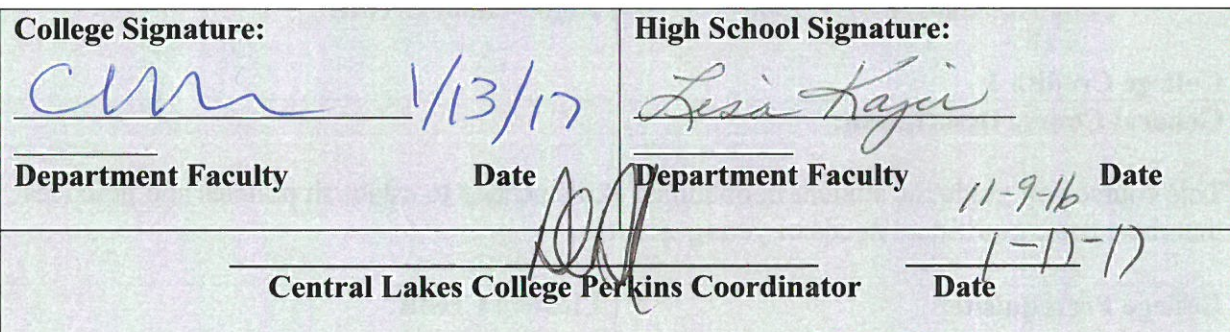 College Signature:
1/13/17
Department Faculty Date
High School Signature:
Lisa Kajer
Department Faculty Date
11-9-16
1-17-17
Central Lakes College Perkins Coordinator Date